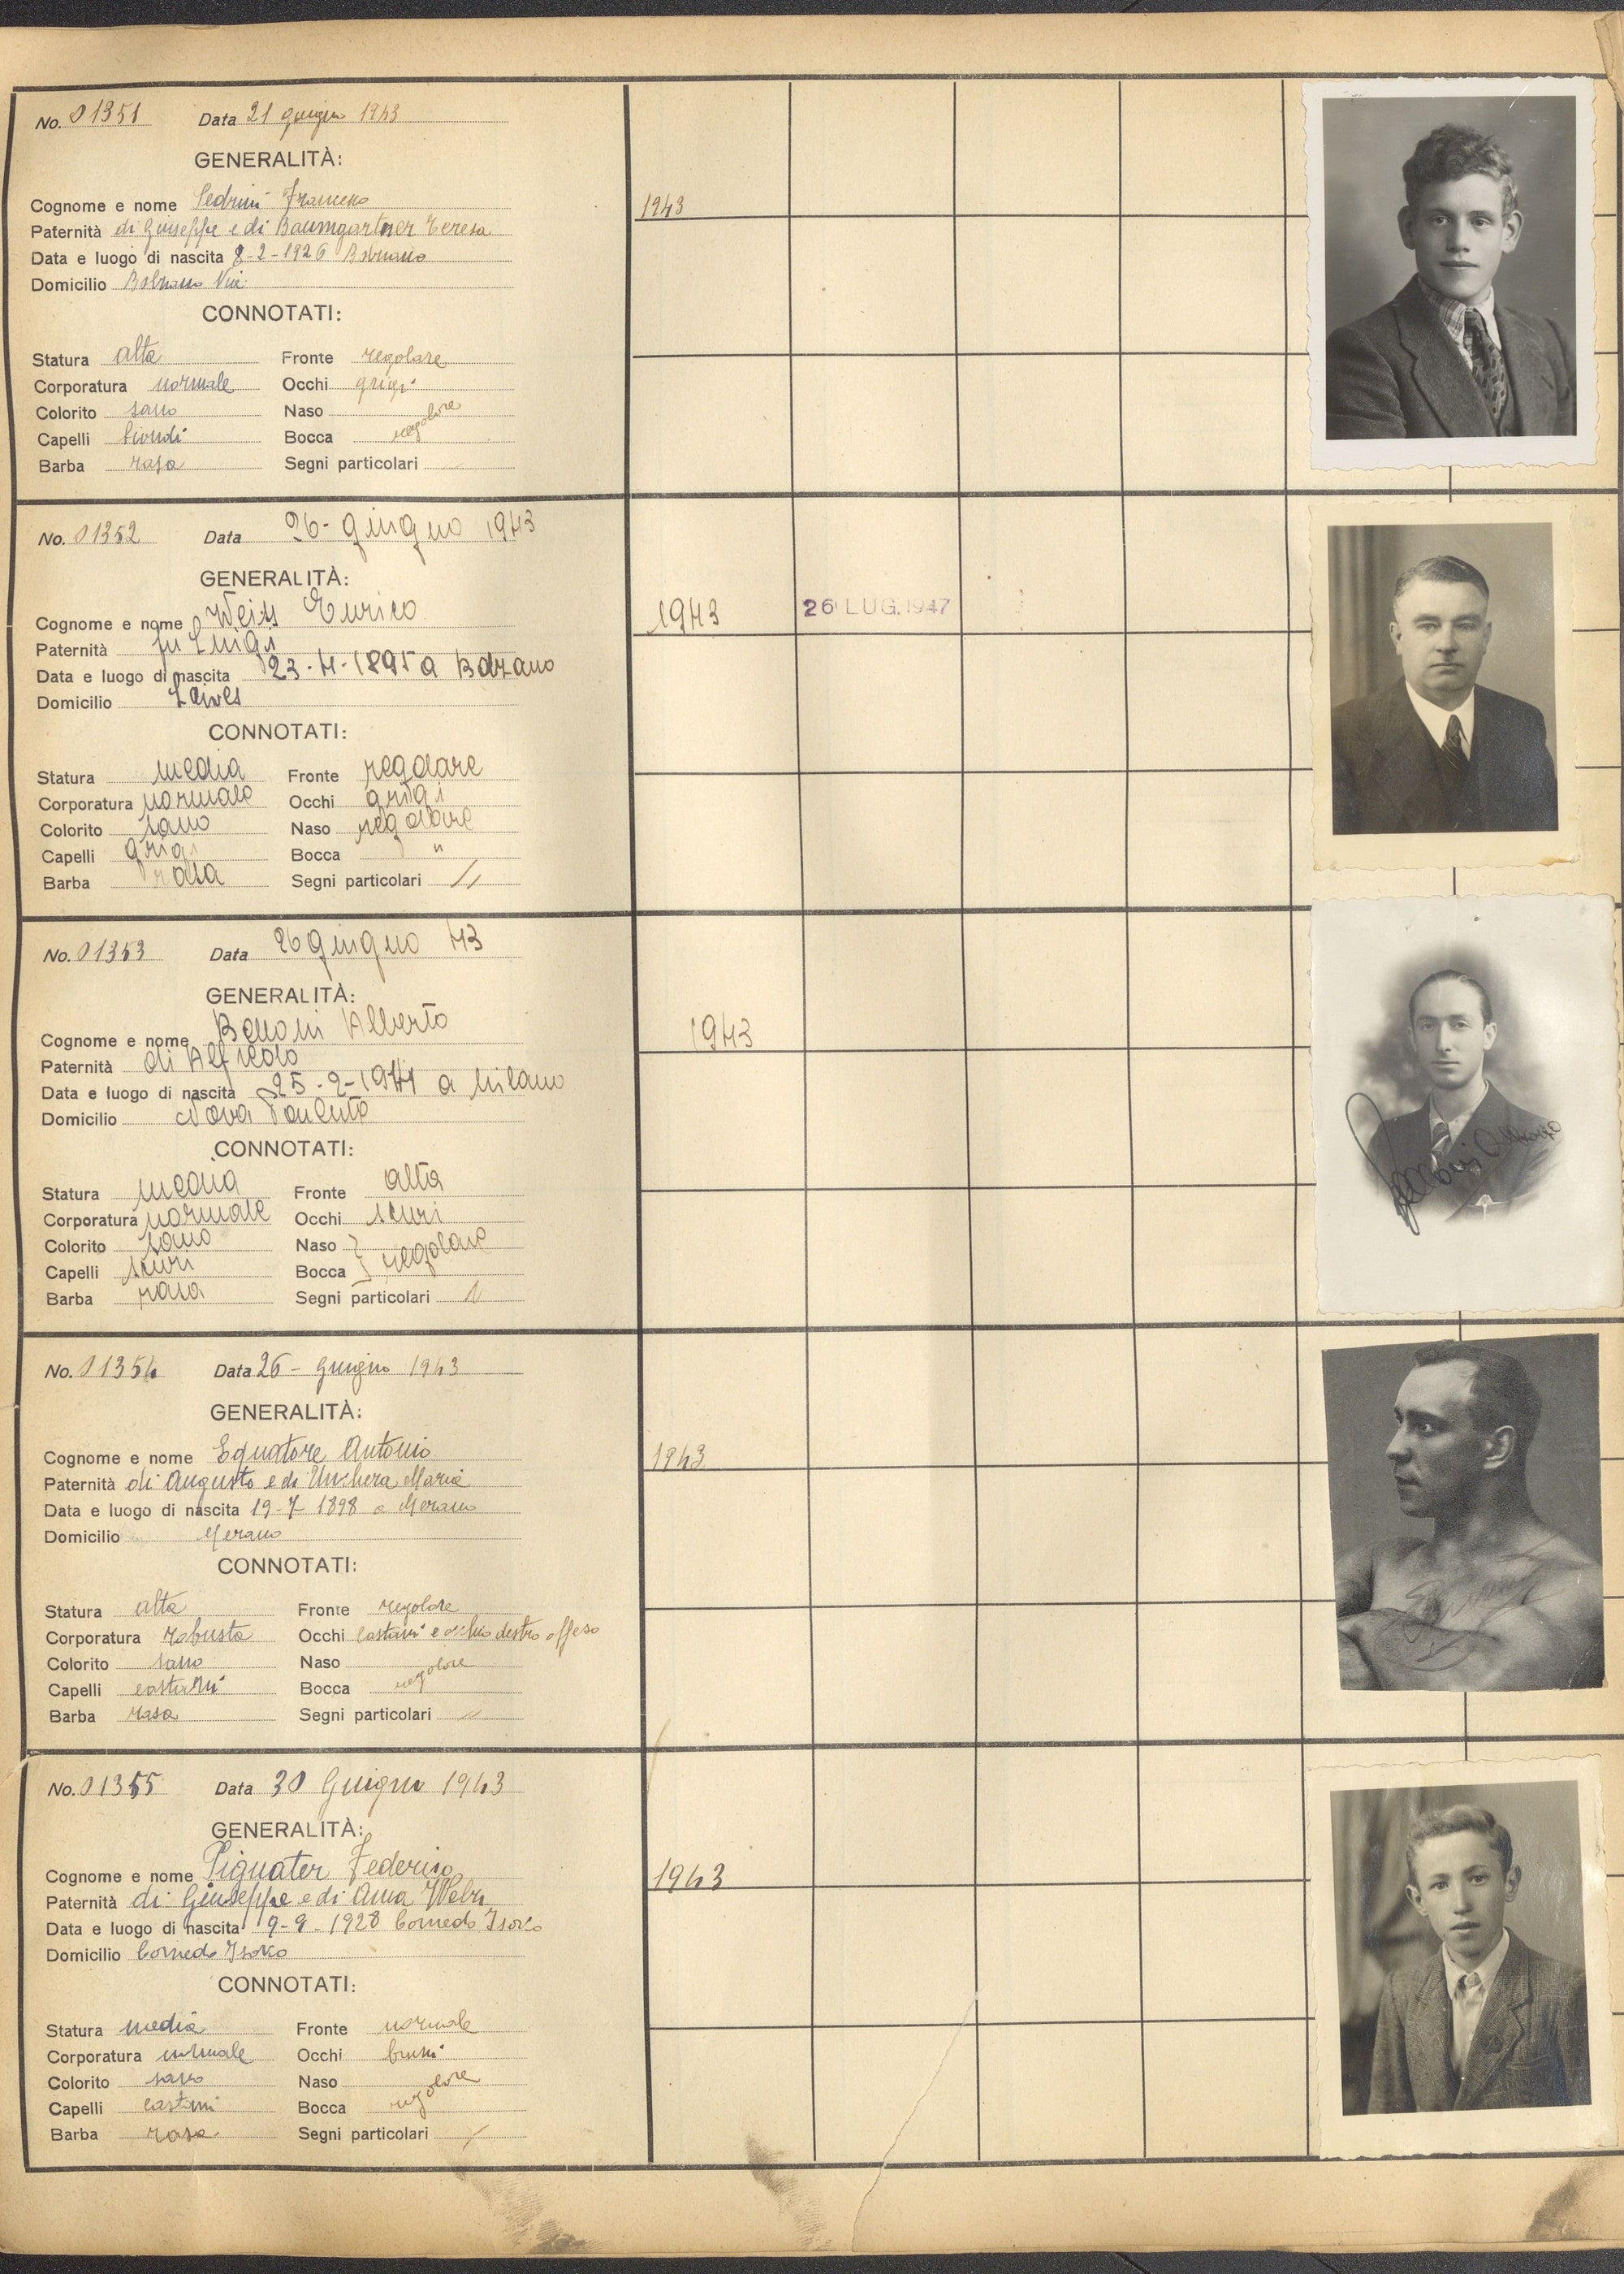 No. 01351 Data 21 giugno 1943
GENERALITÀ:
Cognome e nome Pedrini Francesco
Paternità di Giuseppe e di Baumgartner Teresa
Data e luogo di nascita 8-2-1926 Bolzano
Domicilio Bolzano
CONNOTATI:
Statura alta Fronte regolare
Corporatura normale Occhi grigi
Colorito sano Naso
Capelli biondi Bocca regolare
Barba rasa Segni particolari
1943
No. 01352 Data 26- giugno 1943
GENERALITÀ:
Cognome e nome Weiss Enrico
Paternità fu Luigi
Data e luogo di nascita 23-4-1895 a Bolzano
Domicilio Laives
CONNOTATI:
Statura media Fronte regolare
Corporatura normale Occhi grigi
Colorito sano Naso regolare
Capelli grigi Bocca "
Barba rasa Segni particolari //
1943 26 LUG. 1947
No. 01353 Data 26 giugno 43
GENERALITÀ:
Cognome e nome Alberto
Paternità di Alfredo
Data e luogo di nascita a Milano
Domicilio Nova Ponente
CONNOTATI:
Statura media Fronte alta
Corporatura normale Occhi scuri
Colorito sano Naso
Capelli scuri Bocca regolare
Barba rasa Segni particolari
1943
No. 01354 Data 26- giugno 1943
GENERALITÀ:
Cognome e nome Equatore Antonio
Paternità di Augusto e di Maria
Data e luogo di nascita 19-7-1898 a Merano
Domicilio Merano
CONNOTATI:
Statura alta Fronte regolare
Corporatura robusta Occhi castani e occhio destro offeso
Colorito sano Naso
Capelli castani Bocca regolare
Barba rasa Segni particolari //
1943
No. 01355 Data 30 Giugno 1943
GENERALITÀ:
Cognome e nome Pignater Federico
Paternità di Giuseppe e di Anna
Data e luogo di nascita 9-9-1928 Cornedo Isarco
Domicilio Cornedo Isarco
CONNOTATI:
Statura media Fronte normale
Corporatura normale Occhi bruni
Colorito sano Naso
Capelli castani Bocca regolare
Barba rasa Segni particolari /
1943